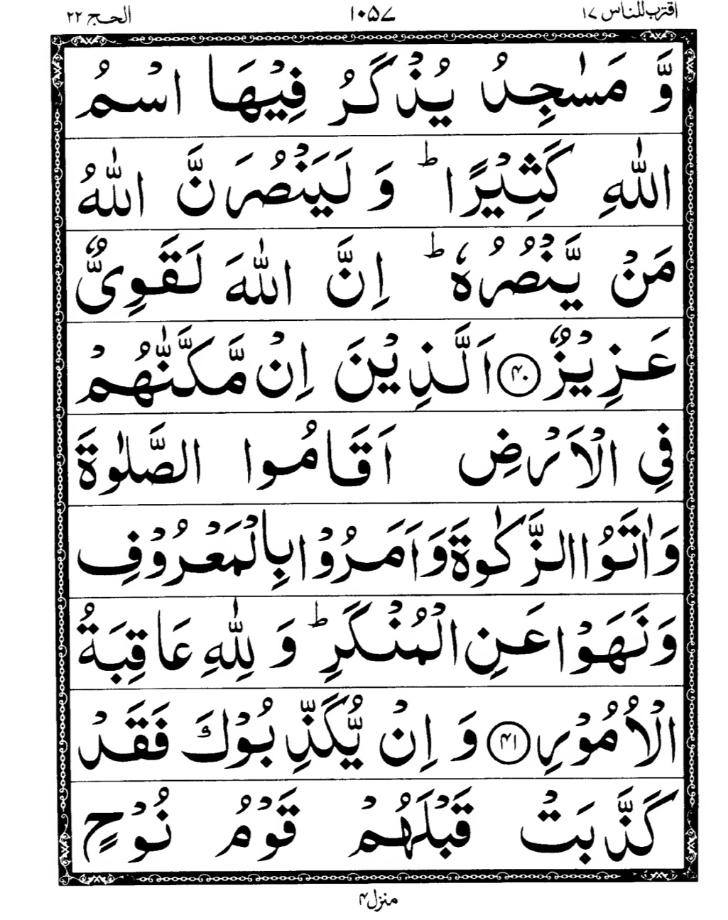 اقترب للناس ١٧ ١٠٥٧ الحج ٢٢
وَّ مَسٰجِدُ يُذْكَرُ فِيْهَا اسْمُ
اللّٰهِ كَثِيْرًا ؕ وَ لَيَنْصُرَنَّ اللّٰهُ
مَنْ يَّنْصُرُهٗ ؕ اِنَّ اللّٰهَ لَقَوِىٌّ
عَزِيْزٌ ﴿۴۰﴾ اَلَّذِيْنَ اِنْ مَّكَّنّٰهُمْ
فِى الْاَرْضِ اَقَامُوا الصَّلٰوةَ
وَاٰتَوُا الزَّكٰوةَ وَاَمَرُوْا بِالْمَعْرُوْفِ
وَنَهَوْا عَنِ الْمُنْكَرِ ؕ وَ لِلّٰهِ عَاقِبَةُ
الْاُمُوْرِ ﴿۴۱﴾ وَ اِنْ يُّكَذِّبُوْكَ فَقَدْ
كَذَّبَتْ قَبْلَهُمْ قَوْمُ نُوْحٍ
منزل ۴